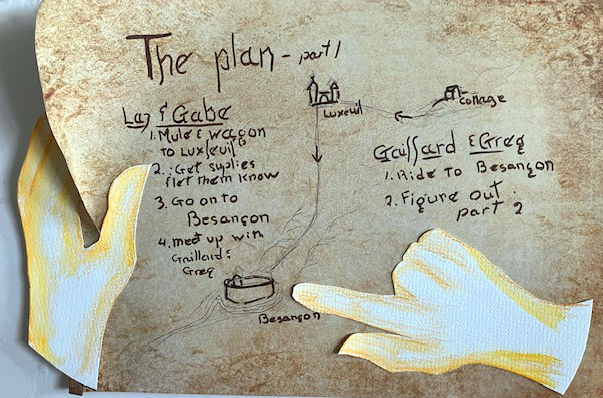 The plan - part 1
Laz & Gabe
1. Mule & wagon
to Luxeuil
2. Get suplies
& let them know
3. Go on to
Besançon
4. meet up with
Gaillard &
Greg
Luxeuil
cottage
Gaillard & Greg
1. Ride to Besançon
2. Figure out
part 2
Besançon